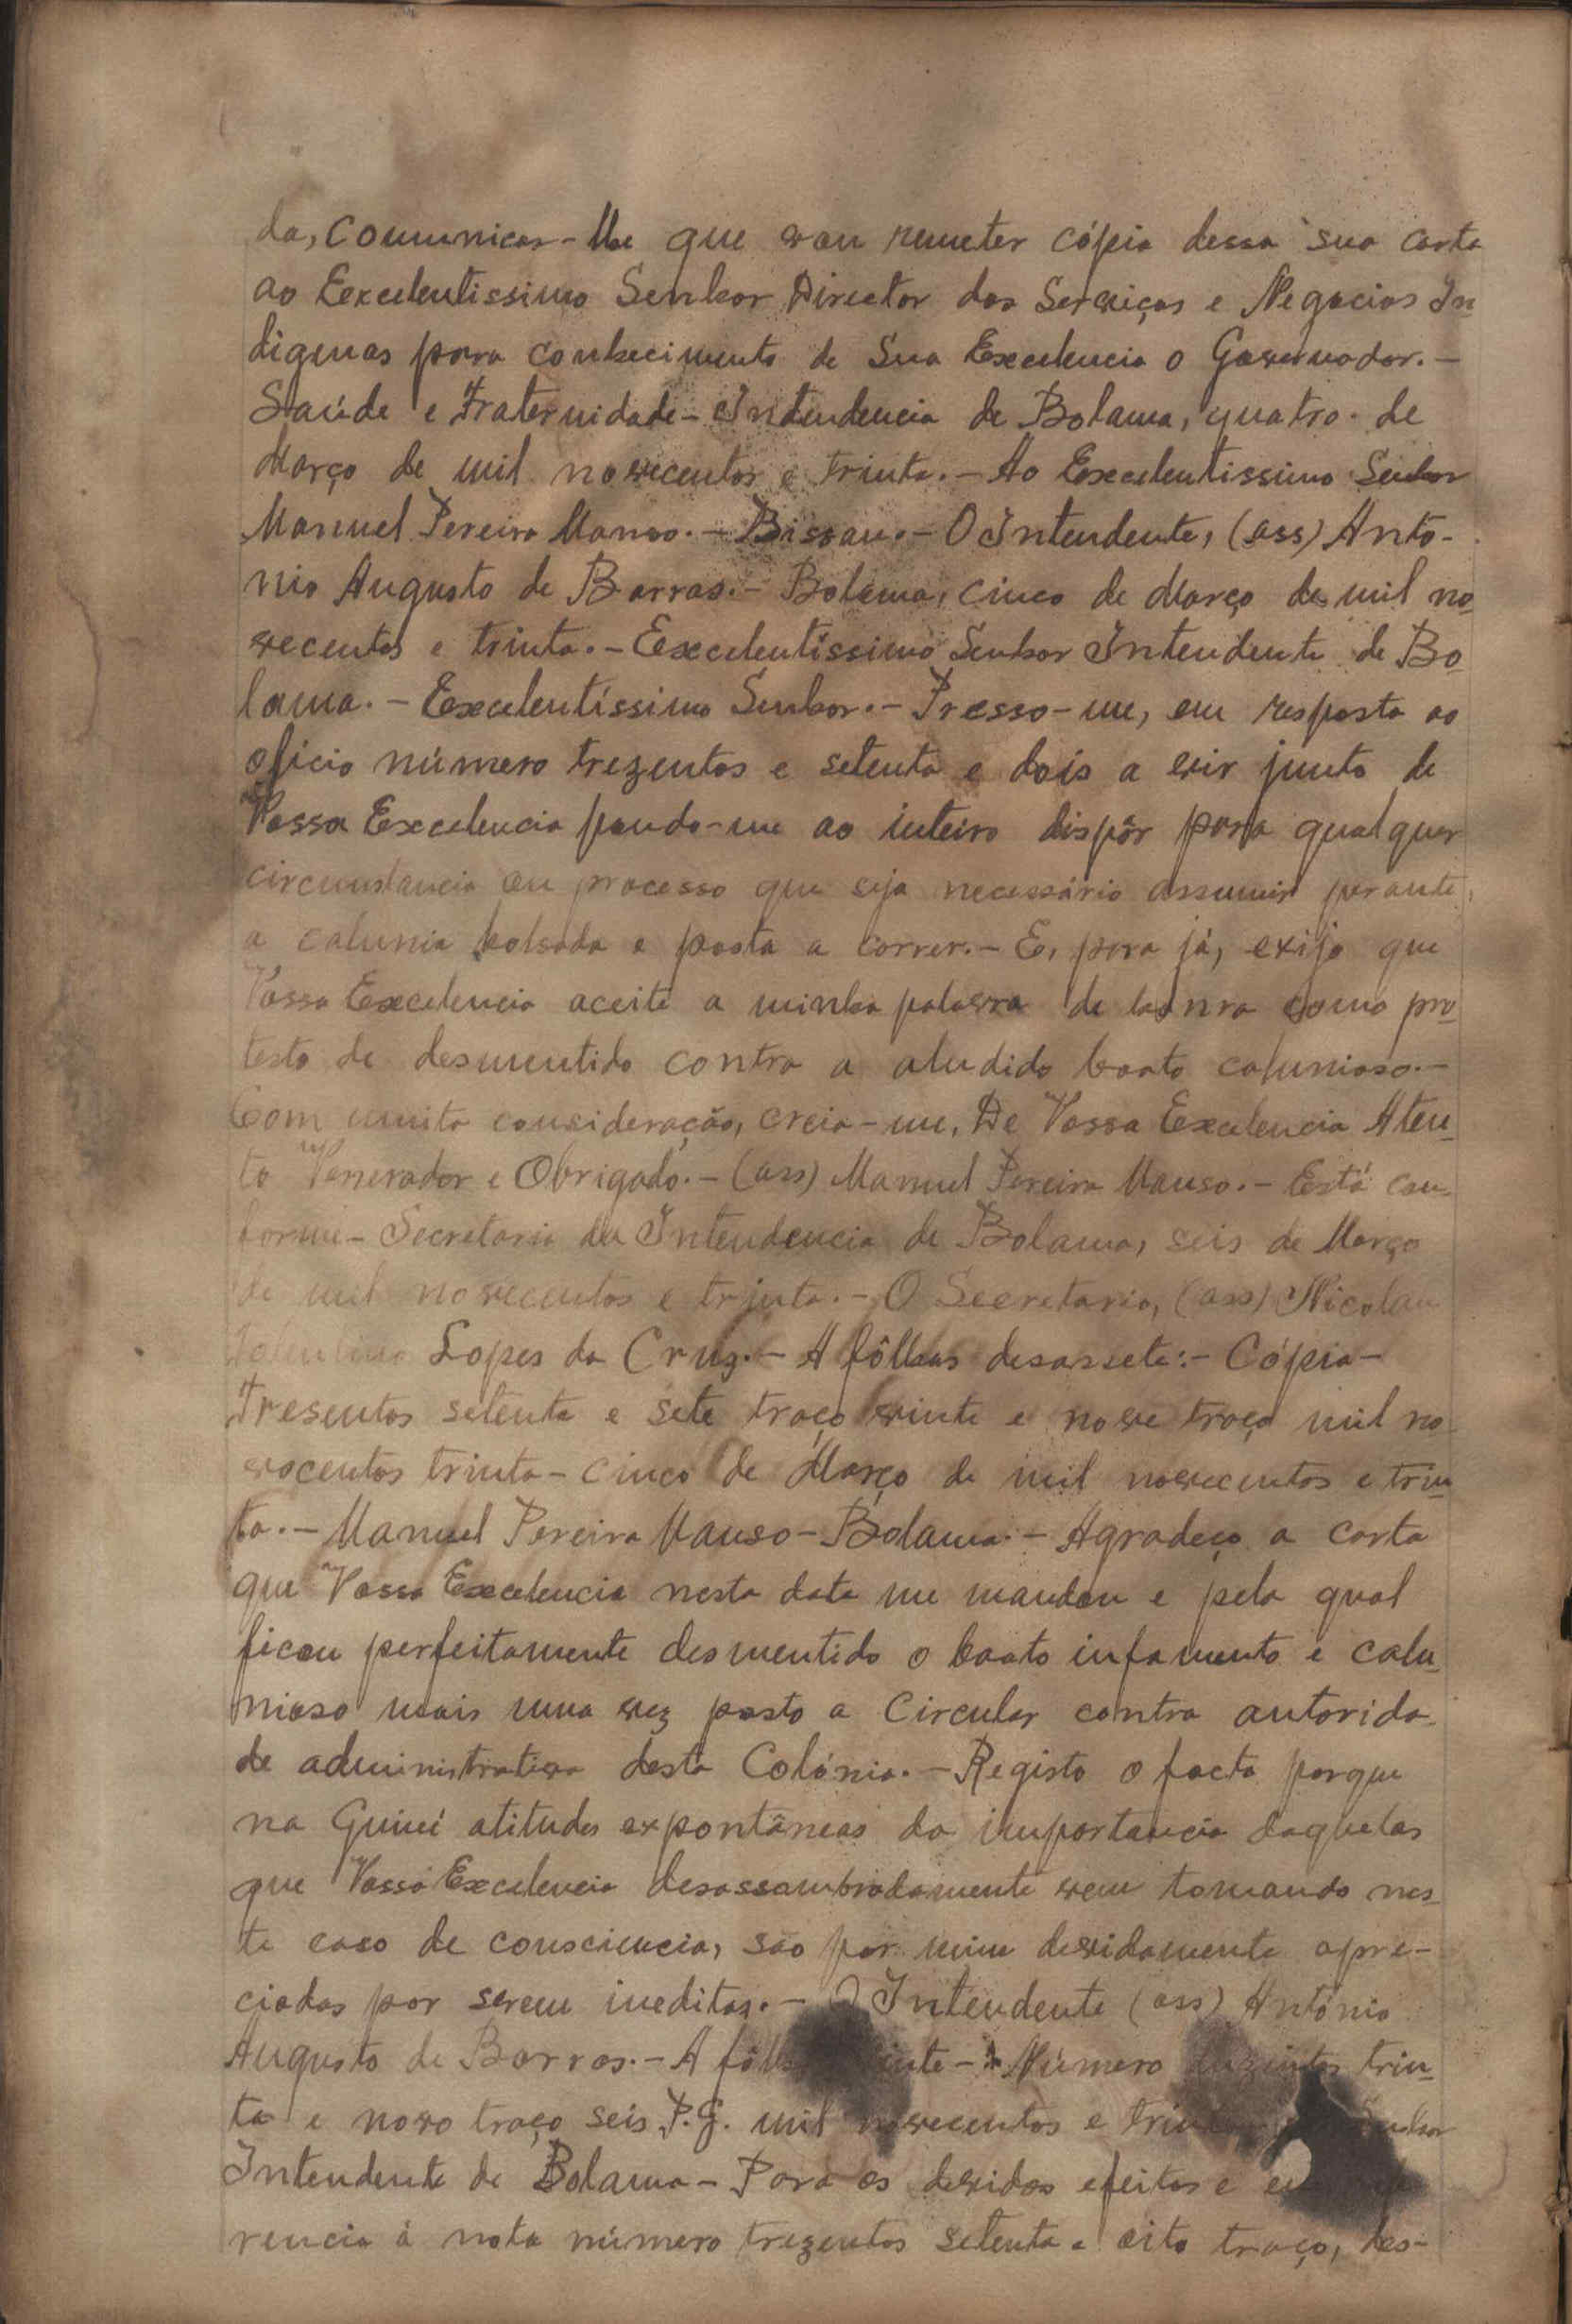 da, comunicar-lhe que vou remeter cópia dessa sua carta
ao Excelentissimo Senhor Director dos Serviços e Negocios In
digenas para conhecimento de Sua Excelencia o Governador.-
Saúde e Fraternidade- Intendencia de Bolama, quatro de
Março de mil novecentos e trinta.- Ao Excelentissimo Senhor
Manuel Pereira Manso.- Bissau.- O Intendente, (ass) Anto-
nio Augusto de Barros.- Bolama, cinco de Março de mil no
vecentos e trinta.- Excelentíssimo Senhor Intendente de Bo
lama.- Excelentíssimo Senhor.- Presso-me, em resposta ao
ofício número trezentos e setenta e dois a vir junto de
Vossa Excelencia pondo-me ao inteiro dispôr para qualquer
circunstancia ou processo que seja necessário assumir perante,
a calunia bolsada e posta a correr.- E, para já, exijo que
Vossa Excelencia aceite a minha palavra de honra como pro
testo de desmentido contra a aludido boato calunioso.-
Com muita consideração, creia-me, De Vossa Excelencia Aten
to Venerador e Obrigado.- (ass) Manuel Pereira Manso.- Está con
forme- Secretaria da Intendencia de Bolama, seis de Março
de mil novecentos e trinta.- O Secretario, (ass) Nicolau
Lopes da Cruz.- A fôlhas desassete:- Cópia-
Tresentos setenta e sete traço vinte e nove traço mil no
vocentos trinta- cinco de Março de mil novecentos e trin
ta.- Manuel Pereira Manso- Bolama.- Agradeço a carta
que Vossa Excelencia nesta data me mandou e pela qual
ficou perfeitamente desmentido o boato infamento e calu
nioso mais uma vez posto a circular contra autorida
de administrativa desta Colónia.- Registo o facto porque
na Guiné atitudes expontâneas da importancia daquelas
que Vossa Excelencia desassombradamente vem tomando nes
te caso de consciencia, são por mim devidamente apre-
ciadas por serem ineditas.- O Intendente (ass) António
Augusto de Barros.- A - Número trin
ta e novo traço seis P.G. mil novecentos e
Intendente de Bolama- Para os devidos efeitos e
rencia á nota número trezentos setenta e oito traço, des-